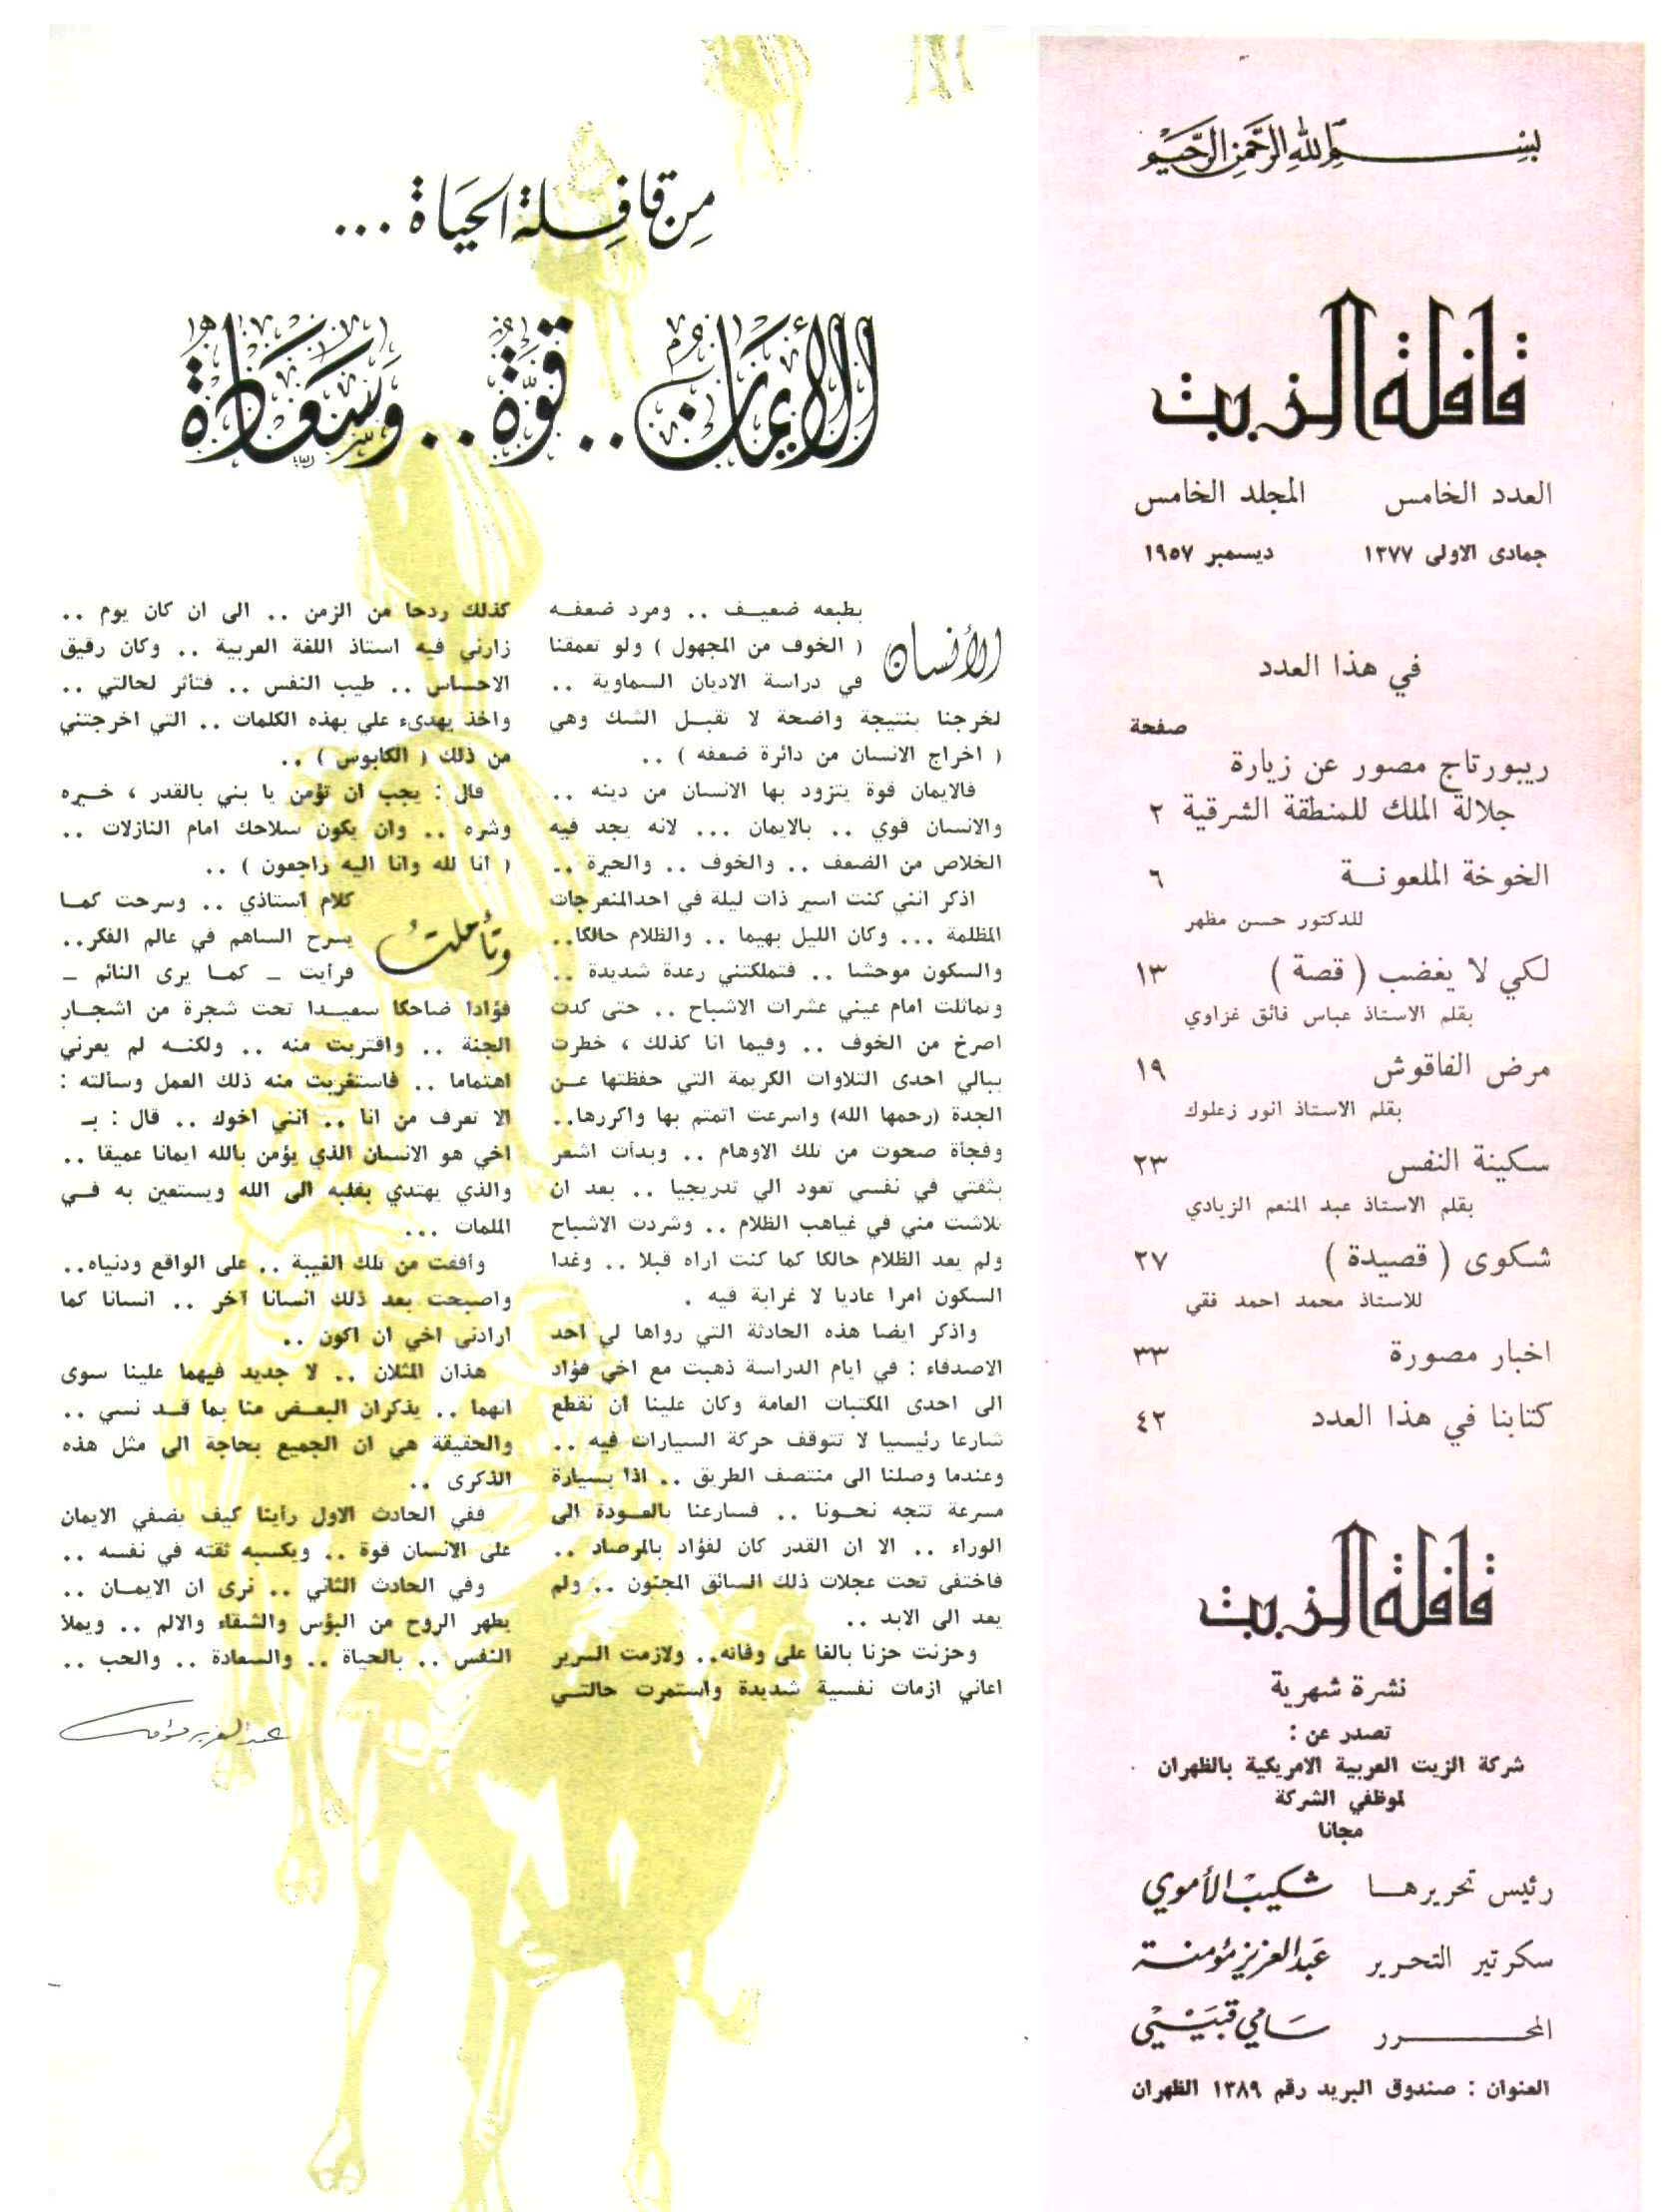 بسم الله الرحمن الرحيم
قافلة الزيت
العدد الخامس المجلد الخامس
جمادى الاولى ١٣٧٧ ديسمبر ١٩٥٧
في هذا العدد
صفحة
ريبورتاج مصور عن زيارة
جلالة الملك للمنطقة الشرقية ٢
الخوخة الملعونــة ٦
للدكتور حسن مظهر
لكي لا يغضب ( قصة ) ١٣
بقلم الاستاذ عباس فائق غزاوي
مرض الفاقوش ١٩
بقلم الاستاذ انور زعلوك
سكينة النفس ٢٣
بقلم الاستاذ عبد المنعم الزيادي
شكوى ( قصيدة ) ٢٧
للاستاذ محمد احمد فقي
اخبار مصورة ٣٣
كتابنا في هذا العدد ٤٢
قافلة الزيت
نشرة شهرية
تصدر عن :
شركة الزيت العربية الامريكية بالظهران
لموظفي الشركة
مجانا
رئيس تحريرهــا شكيب الأموي
سكرتير التحرير عبد العزيز مؤمنة
المحـــرر سامي قبيسي
العنوان : صندوق البريد رقم ١٣٨٩ الظهران
من قافلة الحياة ...
الإيمان .. قوة .. وسعادة
الإنسان بطبعه ضعيــف .. ومرد ضعفــه
( الخوف من المجهول ) ولو تعمقنا
في دراسة الاديان السماوية ..
لخرجنا بنتيجة واضحة لا تقبــل الشك وهي
( اخراج الانسان من دائرة ضعفه ) ..
فالايمان قوة يتزود بها الانسان من دينه ..
والانسان قوي .. بالايمان ... لانه يجد فيه
الخلاص من الضعف .. والخوف .. والحيرة ..
اذكر انني كنت اسير ذات ليلة في احدالمنعرجات
المظلمة ... وكان الليل بهيما .. والظلام حالكا..
والسكون موحشا .. فتملكتني رعدة شديدة ..
وتماثلت امام عيني عشرات الاشباح .. حتى كدت
اصرخ من الخوف .. وفيما انا كذلك ، خطرت
ببالي احدى التلاوات الكريمة التي حفظتها عــن
الجدة (رحمها الله) واسرعت اتمتم بها واكررها..
وفجأة صحوت من تلك الاوهام .. وبدأت اشعر
بثقتي في نفسي تعود الي تدريجيا .. بعد ان
تلاشت مني في غياهب الظلام .. وشردت الاشباح
ولم يعد الظلام حالكا كما كنت اراه قبلا .. وغدا
السكون امرا عاديا لا غرابة فيه .
واذكر ايضا هذه الحادثة التي رواها لي احد
الاصدقاء : في ايام الدراسة ذهبت مع اخي فؤاد
الى احدى المكتبات العامة وكان علينا ان نقطع
شارعا رئيسيا لا تتوقف حركة السيارات فيه ..
وعندما وصلنا الى منتصف الطريق .. اذا بسيارة
مسرعة تتجه نحــونا .. فسارعنا بالعــودة الى
الوراء .. الا ان القدر كان لفؤاد بالمرصاد ..
فاختفى تحت عجلات ذلك السائق المجنون .. ولم
يعد الى الابد ..
وحزنت حزنا بالغا على وفاته.. ولازمت السرير
اعاني ازمات نفسية شديدة واستمرت حالتــي
كذلك ردحا من الزمن .. الى ان كان يوم ..
زارني فيه استاذ اللغة العربية .. وكان رقيق
الاحساس .. طيب النفس .. فتأثر لحالتي ..
واخذ يهدىء علي بهذه الكلمات .. التي اخرجتني
من ذلك ( الكابوس ) ..
قال : يجب ان تؤمن يا بني بالقدر ، خــيره
وشره .. وان يكون سلاحك امام النازلات ..
( انا لله وانا اليه راجعون ) ..
وتأملت كلام استاذي .. وسرحت كمــا
يسرح الساهم في عالم الفكر..
فرأيت – كمــا يرى النائم –
فؤادا ضاحكا سعيــدا تحت شجرة من اشجــار
الجنة .. واقتربت منه .. ولكنــه لم يعرني
اهتماما .. فاستغربت منه ذلك العمل وسألته :
الا تعرف من انا .. انني اخوك .. قال : بـ
اخي هو الانسان الذي يؤمن بالله ايمانا عميقا ..
والذي يهتدي بقلبه الى الله ويستعين به فــي
الملمات ...
وأفقت من تلك الغيبة .. على الواقع ودنياه..
واصبحت بعد ذلك انسانا آخر .. انسانا كما
ارادنى اخي ان اكون ..
هذان المثلان .. لا جديد فيهما علينا سوى
انهما .. يذكران البعــض منا بما قــد نسي ..
والحقيقة هي ان الجميع بحاجة الى مثل هذه
الذكرى ..
ففي الحادث الاول رأينا كيف يضفي الايمان
على الانسان قوة .. ويكسبه ثقته في نفسه ..
وفي الحادث الثاني .. نرى ان الايمــان ..
يطهر الروح من البؤس والشقاء والالم .. ويملا
النفس .. بالحياة .. والسعادة .. والحب ..
عبد العزيز مؤمنة